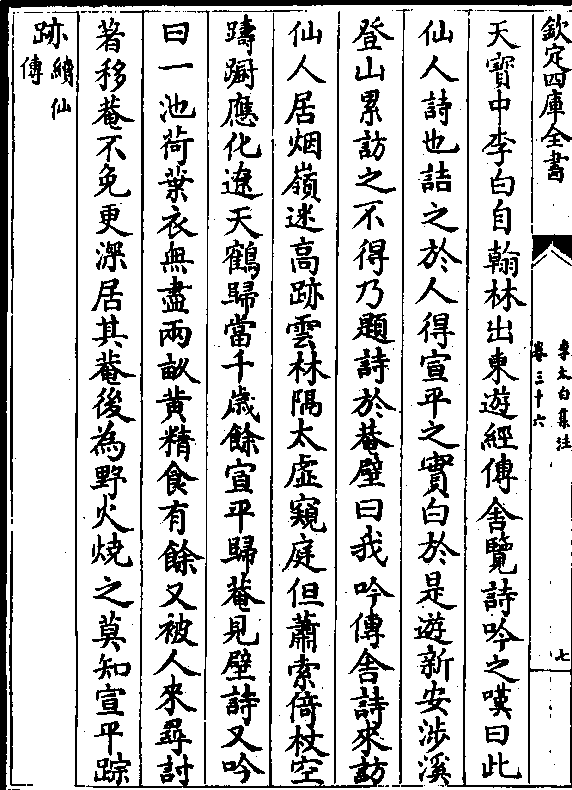 欽定四庫全書
李太白集注
卷三十六
七
天寶中李白自翰林出東遊經傳舍覽詩吟之嘆曰此
仙人詩也詰之於人得宣平之實白於是遊新安涉溪
登山累訪之不得乃題詩於菴壁曰我吟傳舍詩來訪
仙人居烟嶺迷高跡雲林隔太虛窺庭但蕭索倚杖空
躊躕應化遼天鶴歸當千歳餘宣平歸菴見壁詩又吟
曰一池荷葉衣無盡兩畝黃精食有餘又被人來尋討
著移菴不免更深居其菴後為野火燒之莫知宣平踪
跡續仙
傳